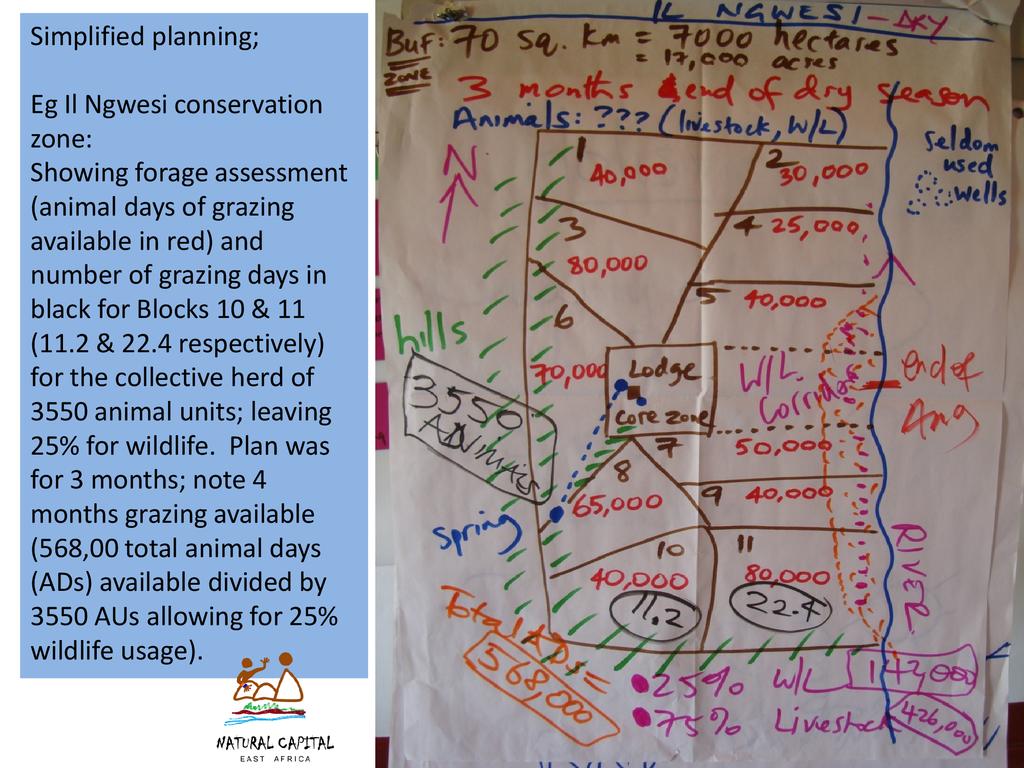 Simplified planning;
Eg Il Ngwesi conservation
zone:
Showing forage assessment
(animal days of grazing
available in red) and
number of grazing days in
black for Blocks 10 & 11
(11.2 & 22.4 respectively)
for the collective herd of
3550 animal units; leaving
25% for wildlife. Plan was
for 3 months; note 4
months grazing available
(568,00 total animal days
(ADs) available divided by
3550 AUs allowing for 25%
wildlife usage).
NATURAL CAPITAL
EAST AFRICA
IL NGWESI - DRY
Buf: 70 sq. Km = 7000 hectares
ZONE
= 17,000 acres
3 months end of dry season
Animals: ??? (livestock, W/L)
N
Seldom
used
wells
1
40,000
2
30,000
3
80,000
4 25,000
5 40,000
6
70,000
hills
3550
ANIMALS
Lodge
core zone
W/L
Corridor
end of
Aug
7
50,000
8
65,000
9 40,000
spring
10
40,000
11.2
11
80,000
22.4
RIVER
Total ADs =
568,000
25% W/L
75% Livestock 426,000